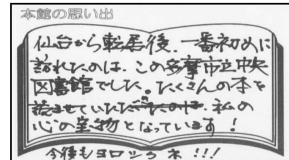 本館の思い出
仙台から転居後、一番初めに
訪れたのは、この多摩市立中央
図書館でした。たくさんの本を
読ませていただ 私の
心の宝物となっています!
今後もヨロシクネ!!!